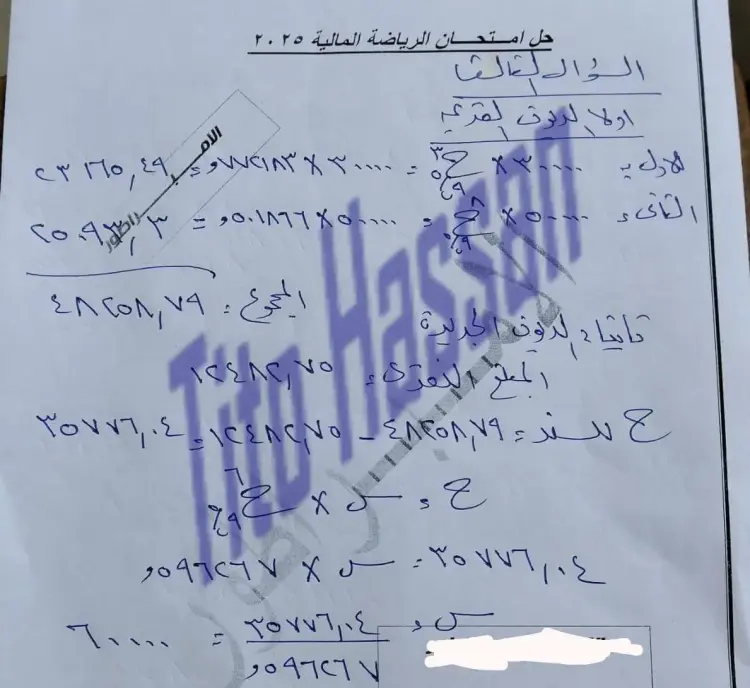 حل امتحان الرياضة المالية ٢٠٢٥
السؤال الثالث
اولا الديون القديمة
الاول = ٣٠٠٠٠ × ح٣ ٩٪ = ٣٠٠٠٠ × ٠,٧٧٢١٨٣ = ٢٣١٦٥,٤٩
الثانى = ٥٠٠٠٠ × ح٨ ٩٪ = ٥٠٠٠٠ × ٠,٥٠١٨٦٦ = ٢٥٠٩٣,٣
المجموع = ٤٨٢٥٨,٧٩
ثانيا الديون الجديدة
المبلغ النقدى = ١٢٤٨٢,٧٥
ح للسند = ٤٨٢٥٨,٧٩ - ١٢٤٨٢,٧٥ = ٣٥٧٧٦,٠٤
ح = س × ح٦ ٩٪
٣٥٧٧٦,٠٤ = س × ٠,٥٩٦٢٦٧
س = ٣٥٧٧٦,٠٤ / ٠,٥٩٦٢٦٧ = ٦٠٠٠٠
Tito Hassan